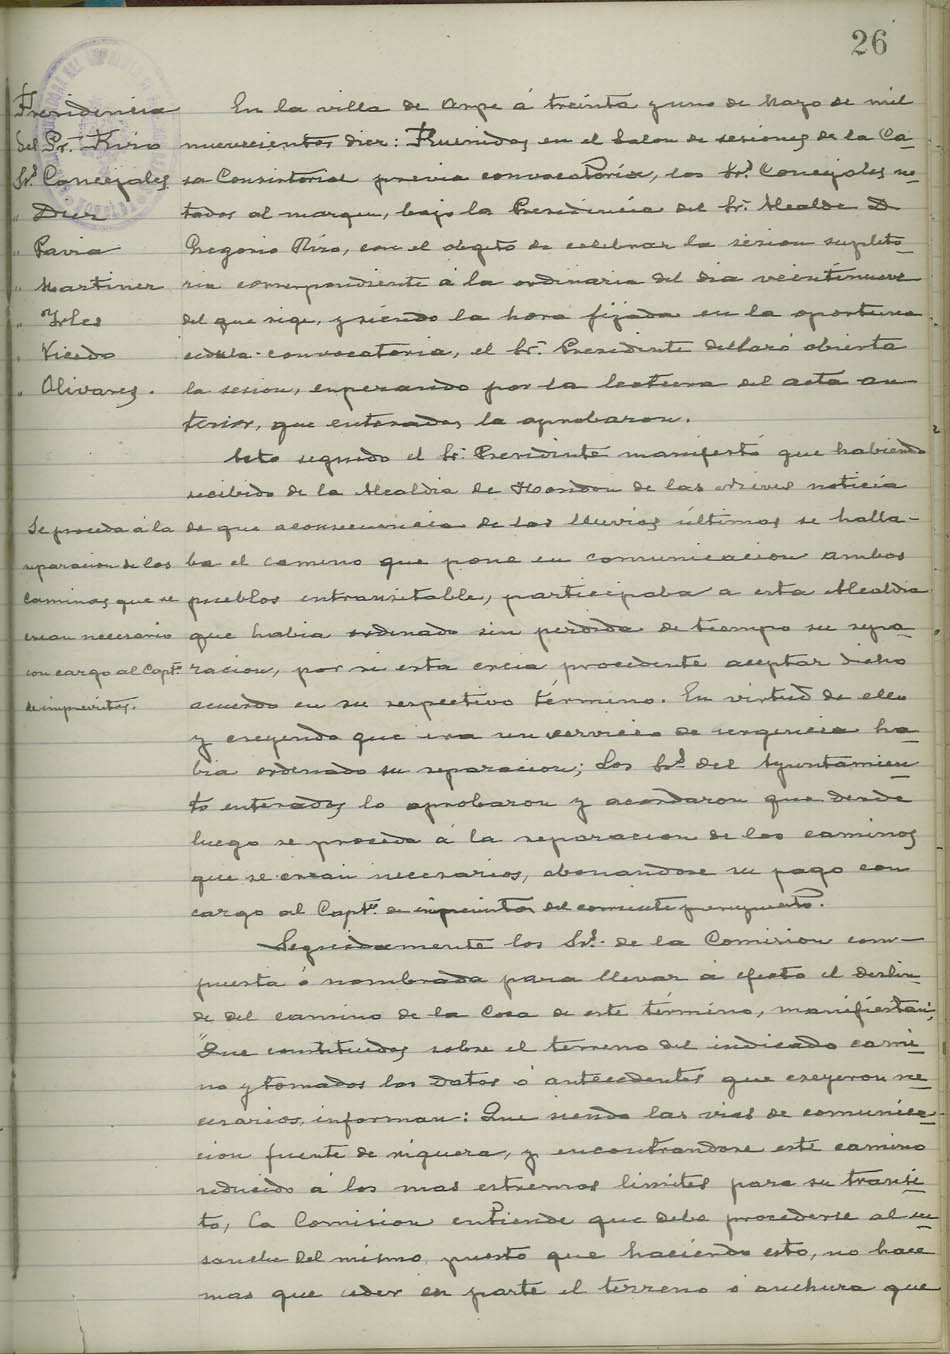 26
Presidencia
del Sr. Rizo
Srs. Concejales
" Diez
" Pavia
" Martinez
" Yrles
" Vicedo
" Olivares.
En la villa de Aspe á treinta y uno de Mayo de mil
novecientos diez: Reunidos en el Salon de sesiones de la Ca-
sa Consistorial previa convocatoria, los Srs. Concejales no-
tados al margen, bajo la Presidencia del Sr. Alcalde D
Gregorio Rizo, con el objeto de celebrar la sesion supleto-
ria correspondiente á la ordinaria del dia veintinueve
del que rige, y siendo la hora fijada en la oportuna
cedula-convocatoria, el Sr. Presidente declaró abierta
la sesion, enperando por la lectura del acta an-
terior, que enterados la aprobaron.
Acto seguido el Sr. Presidente manifestó que habiendo
recibido de la Alcaldia de Hondon de las Nieves noticia
de que aconsecuencia de las lluvias últimas se halla-
ba el camino que pone en comunicacion ambos
pueblos intransitable, participaba a esta Alcaldia
que habia ordenado sin perdida de tiempo su repa-
racion, por si esta creia procedente aceptar dicho
acuerdo en su respectivo término. En virtud de ello
y creyendo que era un servicio de urgencia ha-
bia ordenado su reparacion; Los Srs. del Ayuntamien-
to enterados lo aprobaron y acordaron que desde
luego se proceda á la reparacion de los caminos
que se crean necesarios, abonandose su pago con
cargo al Capto. de imprevistos del corriente presupuesto.
Se proceda á la
reparacion de los
caminos que se
crean necesario
con cargo al Capto.
de imprevistos.
Seguidamente los Srs. de la Comision com-
puesta ó nombrada para llevar á efecto el deslin-
de del camino de la Coca de este término, manifiestan;
"Que constituidos sobre el terreno del indicado cami-
no y tomados los datos ó antecedentes que creyeron ne-
cesarios, informan: Que siendo las vias de comunica-
cion fuente de riqueza, y encontrandose este camino
reducido á los mas estremos limites para su transi-
to, la Comision entiende que debe procederse al en-
sanche del mismo, puesto que haciendo esto, no hace
mas que ceder en parte el terreno ó anchura que